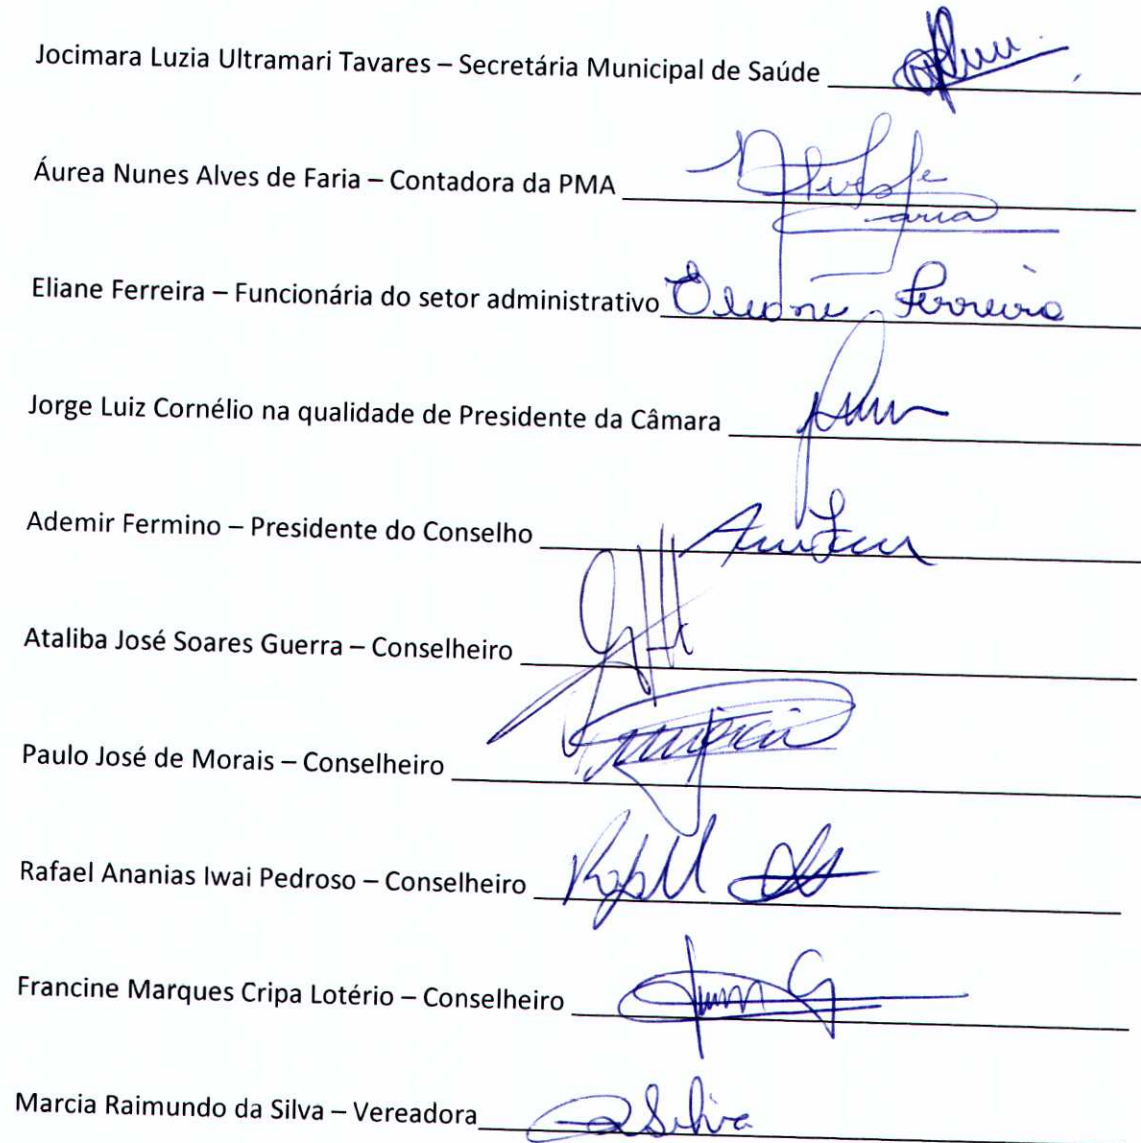 Jocimara Luzia Ultramari Tavares – Secretária Municipal de Saúde
Áurea Nunes Alves de Faria – Contadora da PMA
Faria
Eliane Ferreira – Funcionária do setor administrativo Eliane Ferreira
Jorge Luiz Cornélio na qualidade de Presidente da Câmara
Ademir Fermino – Presidente do Conselho
Ataliba José Soares Guerra – Conselheiro
Paulo José de Morais – Conselheiro
Rafael Ananias Iwai Pedroso – Conselheiro
Francine Marques Cripa Lotério – Conselheiro
Marcia Raimundo da Silva – Vereadora Silva